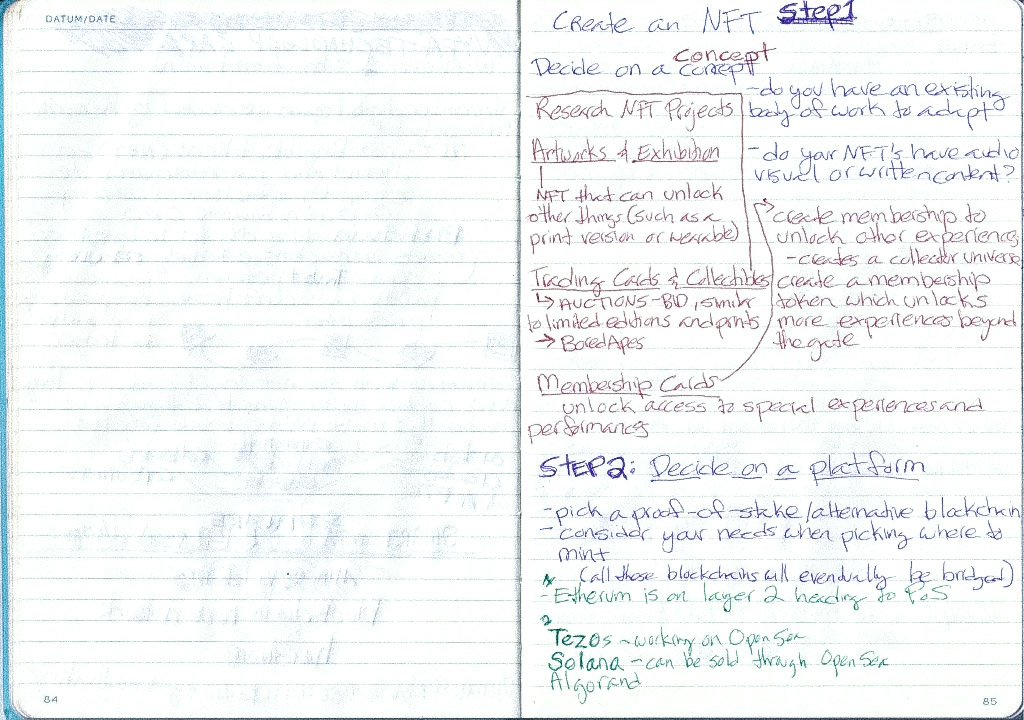 DATUM/DATE
Create an NFT Step1
concept
Decide on a concept
-do you have an existing
body of work to adapt
Research NFT Projects
Artworks & Exhibition
- do your NFT's have audio
visual or written content?
NFT that can unlock
other things (such as a
print version or wearable)
create membership to
unlock other experiences
-creates a collector universe
create a membership
token which unlocks
more experiences beyond
the gate
Trading Cards & Collectibles
↳ AUCTIONS-BID, similar
to limited editions and prints
→ Bored Apes
Membership Cards
unlock access to special experiences and
performances
STEP 2: Decide on a platform
-pick a proof-of-stake/alternative blockchain
- consider your needs when picking where to
mint
(all those blockchains will evendually be bridged)
- Etherum is on layer 2 heading to PoS
Tezos - working on OpenSea
Solana - can be sold through OpenSea
Algorand
84
85